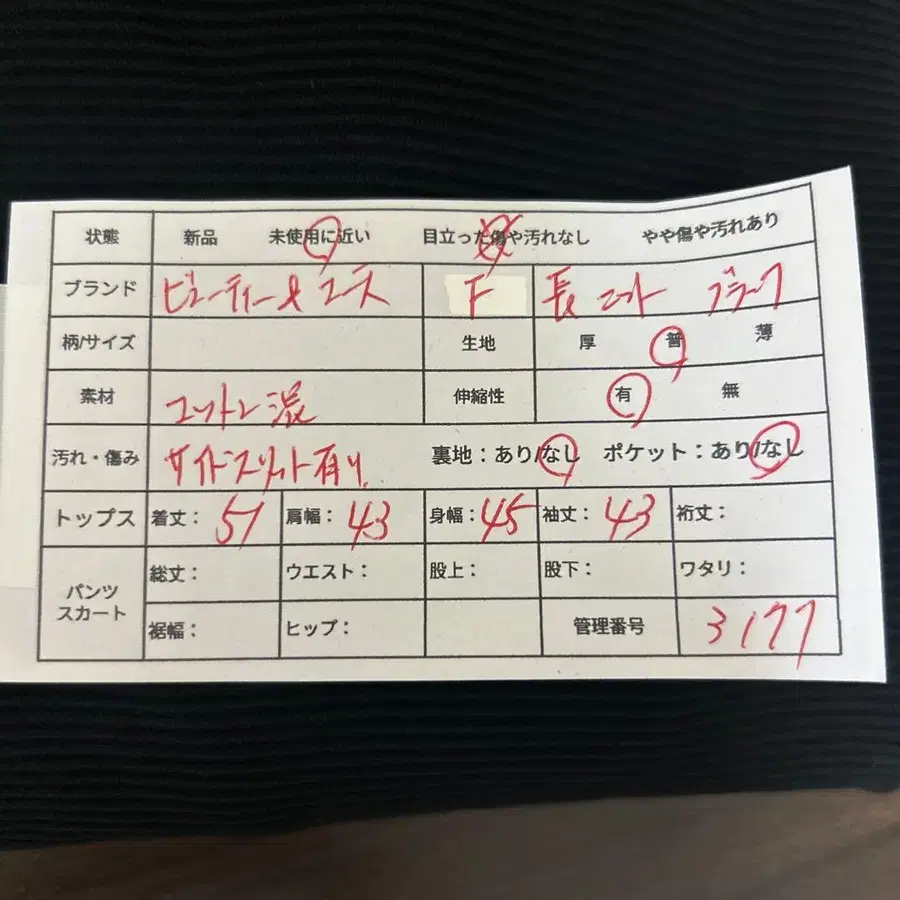 状態 新品 未使用に近い 目立った傷や汚れなし やや傷や汚れあり
ブランド ビューティー&ユース F 長ニット ブラック
柄/サイズ 生地 厚 普 薄
素材 コットン混 伸縮性 有 無
汚れ・傷み サイドスリット有り 裏地:あり/なし ポケット:あり/なし
トップス 着丈: 51 肩幅: 43 身幅: 45 袖丈: 43 裄丈:
パンツ スカート 総丈: ウエスト: 股上: 股下: ワタリ:
裾幅: ヒップ: 管理番号 3177